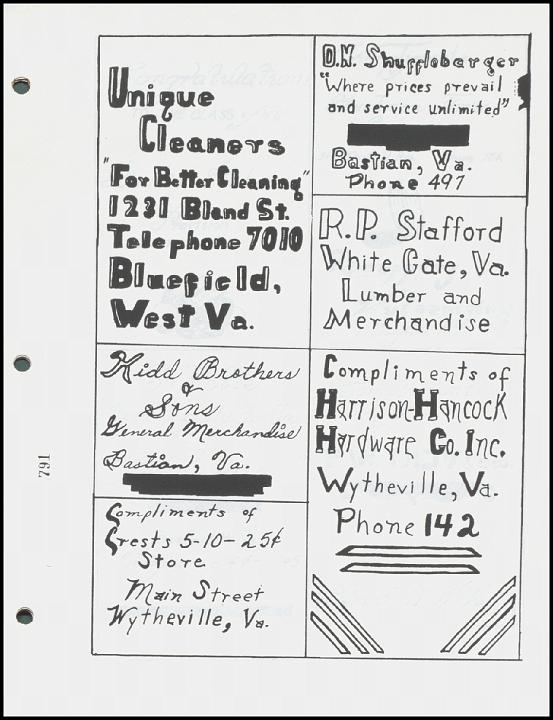 Unique
Cleaners
"For Better Cleaning"
1231 Bland St.
Telephone 7010
Bluefield,
West Va.
O.N. Shuffleberger
"Where prices prevail
and service unlimited"
Bastian, Va.
Phone 497
R.P. Stafford
White Gate, Va.
Lumber and
Merchandise
Kidd Brothers
&
Sons
General Merchandise
Bastian, Va.
Compliments of
Harrison-Hancock
Hardware Co. Inc.
Wytheville, Va.
Phone 142
Compliments of
Crests 5-10-25¢
Store
Main Street
Wytheville, Va.
791